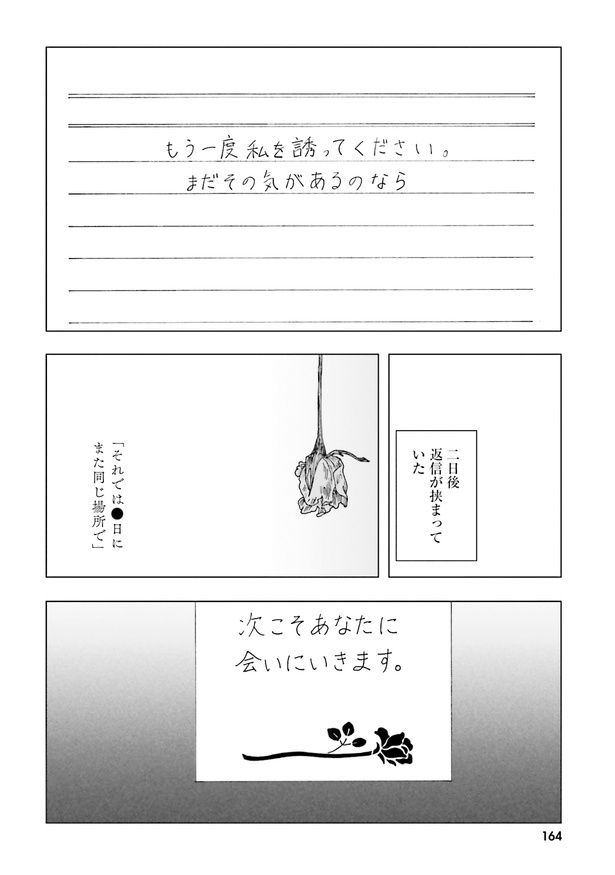 もう一度私を誘ってください。
まだその気があるのなら
二日後
返信が挟まって
いた
「それでは●日に
また同じ場所で」
次こそあなたに
会いにいきます。
164